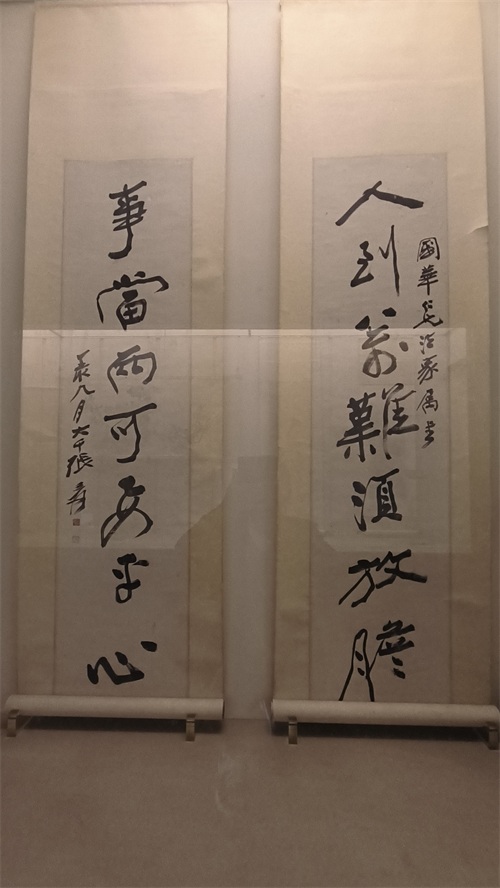 人到萬難須放膽
國華仁兄法家屬書
事當兩可要平心
八月大千張爰